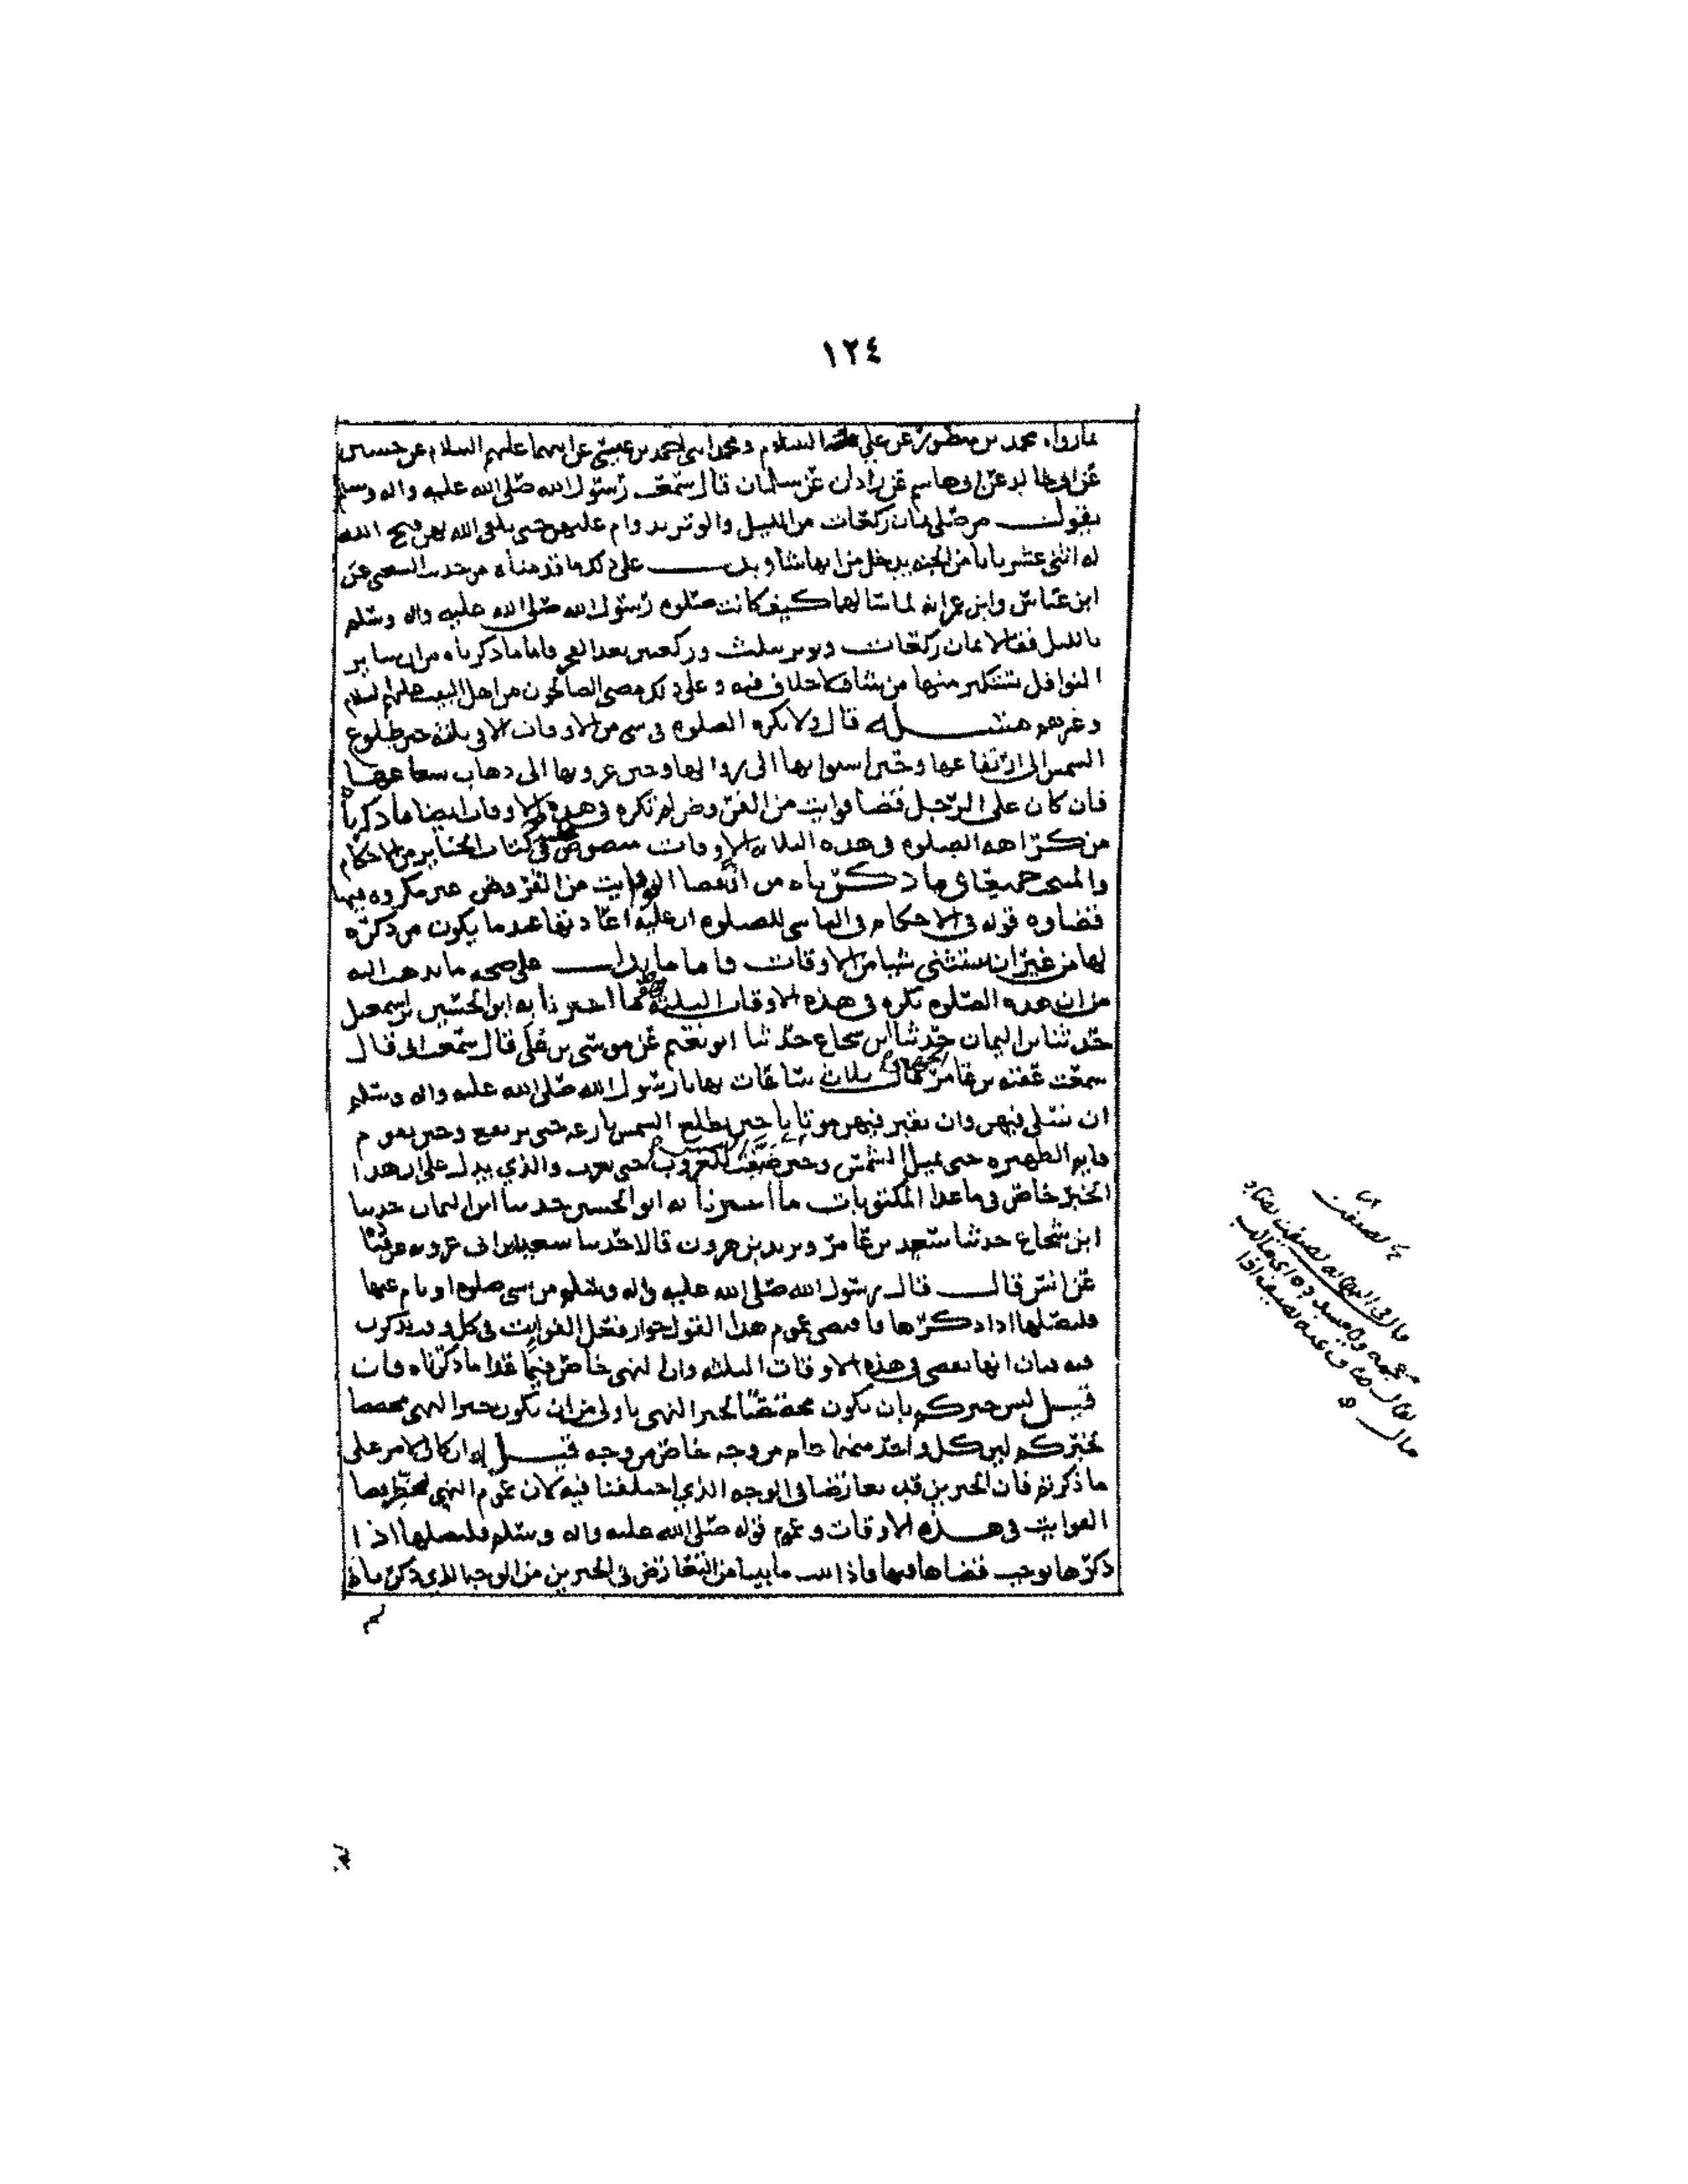 ١٢٤
مارواه محمد بن منصور عن علي السلام ومحمد بن احمد بن عيسى عن ابيهما عليهم السلام عن حسين
عن ابي خالد عن ابي هاسم عن زاذان عن سلمان قال سمعت رسول الله صلى الله عليه واله وسلم
يقول من صلى ثمان ركعات من الليل والوتر يداوم عليهن حتى يلقى الله بهن فتح الله
له اثنى عشر بابا من الجنه يدخل من ايها شا ويدل على ذلك ما قدمناه من حديث الشعبي عن
ابن عباس وابن عمر انه لما سالهما كيف كانت صلوه رسول الله صلى الله عليه واله وسلم
بالليل فقالا ثمان ركعات ويوتر بثلث وركعتين بعد الفجر فاما ما ذكرناه من ان ساير
النوافل يستكثر منها من شا فلا خلاف فيه وعلى ذلك مضى الصالحون من اهل البيت عليهم السلام
وغيرهم مسئله قال ولا تكره الصلوه في شي من الاوقات الا في ثلثه حين طلوع
الشمس الى ارتفاعها وحين استوايها الى زوالها وحين غروبها الى ذهاب شعاعها
فان كان على الرجل قضا فوايت من الفروض لم تكره في هذه الاوقات ايضا ما ذكرناه
من كراهه الصلوه في هذه الثلاثه الاوقات منصوص في كتاب الجنايز من الاحكام
والمنتخب جميعا وما ذكرناه من ان قضا الفوايت من الفروض غير مكروه فيها
قضاوه قوله في الاحكام في الناسي للصلوه ان عليه اعادتها عند ما يكون من ذكره
لها من غير ان يستثنى شيا من الاوقات فاما ما يدل على صحه ما يذهب اليه
من ان هذه الصلوه تكره في هذه الاوقات الثلثه فما اخبرنا به ابو الحسين بن اسمعيل
حدثنا بن اليمان حدثنا ابن شجاع حدثنا ابو نعيم عن موسى بن علي قال سمعت ابي قال
سمعت عقبه بن عامر الجهني قال ثلاث ساعات نهانا رسول الله صلى الله عليه واله وسلم
ان نصلي فيهن وان نقبر فيهن موتانا حين تطلع الشمس بازغه حتى ترتفع وحين يقوم
قايم الظهيره حتى تميل الشمس وحين تضيفت الشمس للغروب حتى تغرب والذي يدل على ان هذا
الخبر خاص في ما عدا المكتوبات ما اخبرنا به ابو الحسين حدثنا ابن اليمان حدثنا
ابن شجاع حدثنا سعيد بن عامر ويزيد بن هرون قالا حدثنا سعيد بن ابي عروبه عن قتاده
عن انس قال قال رسول الله صلى الله عليه واله وسلم من نسي صلوه او نام عنها
فليصلها اذا ذكرها فاقتضى عموم هذا القول جواز فعل الفوايت في كل وقت يذكرن
فيه فبان انها تقضى في هذه الاوقات الثلثه وان النهي خاص فيما عدا ما ذكرناه فان
قيل ليس خبركم بان يكون مخصصا لخبر النهي باولى من ان يكون خبر النهي مخصصا
لخبركم لان كل واحد منهما عام من وجه خاص من وجه قيل له ان كان الامر على
ما ذكرتم فان الخبرين قد تعارضا في الوجه الذي اختلفنا فيه لان عموم النهي يحظر قضا
الفوايت في هذه الاوقات وعموم قوله صلى الله عليه واله وسلم فليصلها اذا
ذكرها يوجب قضاها فيها فاذا ثبت ما بينا من التعارض في الخبرين من الوجه الذي ذكرناه